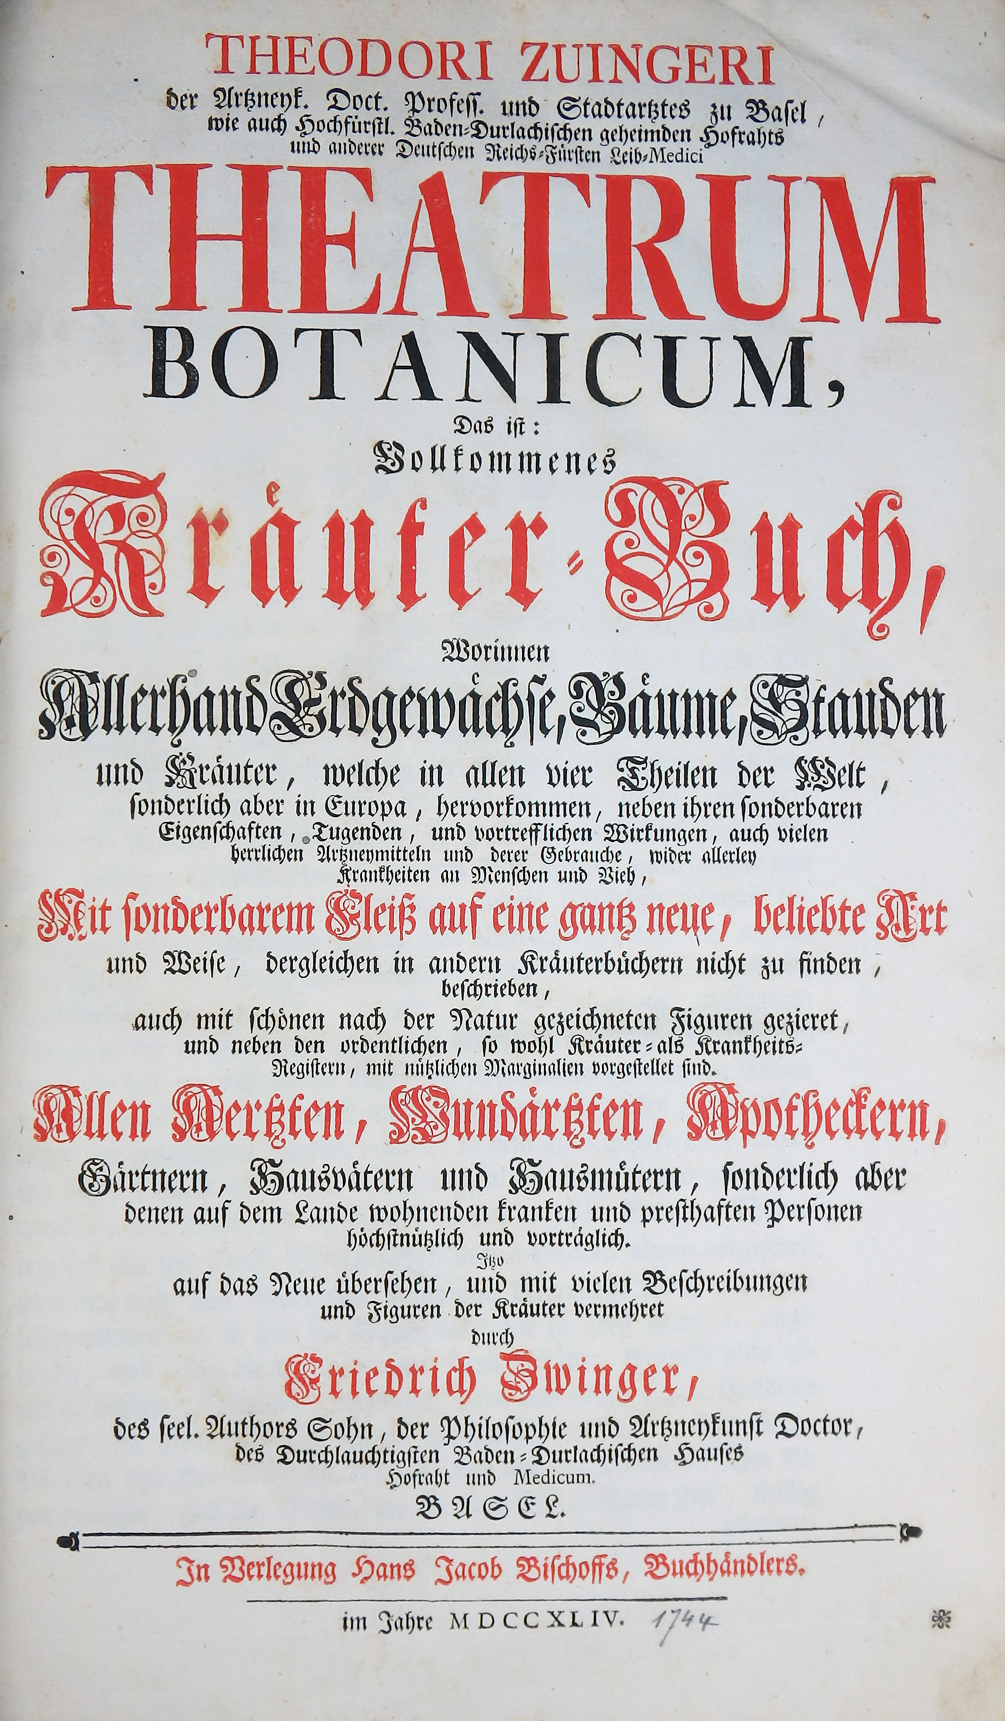 THEODORI ZUINGERI
der Artzneyk. Doct. Profess. und Stadtartztes zu Basel,
wie auch Hochfürstl. Baden-Durlachischen geheimden Hofrahts
und anderer Deutschen Reichs-Fürsten Leib-Medici
THEATRUM
BOTANICUM,
Das ist:
Vollkommenes
Kräuter-Buch,
Worinnen
Allerhand Erdgewächse, Bäume, Stauden
und Kräuter, welche in allen vier Theilen der Welt,
sonderlich aber in Europa, hervorkommen, neben ihren sonderbaren
Eigenschaften, Tugenden, und vortrefflichen Wirkungen, auch vielen
herrlichen Artzneymitteln und derer Gebrauche, wider allerley
Krankheiten an Menschen und Vieh,
Mit sonderbarem Fleiß auf eine gantz neue, beliebte Art
und Weise, dergleichen in andern Kräuterbüchern nicht zu finden,
beschrieben,
auch mit schönen nach der Natur gezeichneten Figuren gezieret,
und neben den ordentlichen, so wohl Kräuter-als Krankheits-
Registern, mit nützlichen Marginalien vorgestellet sind.
Allen Aertzten, Wundärtzten, Apotheckern,
Gärtnern, Hausvätern und Hausmütern, sonderlich aber
denen auf dem Lande wohnenden kranken und presthaften Personen
höchstnützlich und vorträglich.
Itzo
auf das Neue übersehen, und mit vielen Beschreibungen
und Figuren der Kräuter vermehret
durch
Friedrich Zwinger,
des seel. Authors Sohn, der Philosophie und Artzneykunst Doctor,
des Durchlauchtigsten Baden-Durlachischen Hauses
Hofraht und Medicum.
BASEL.
In Verlegung Hans Jacob Bischoffs, Buchhändlers.
im Jahre MDCCXLIV. 1744